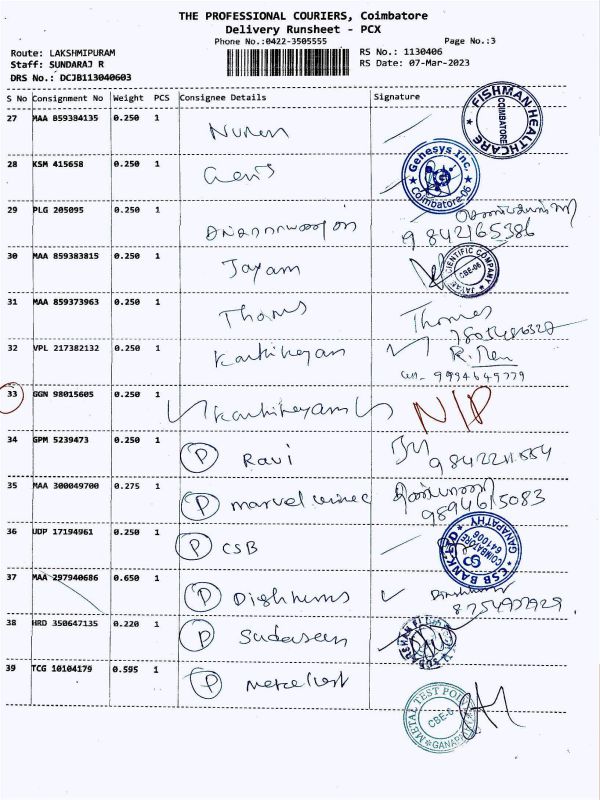 THE PROFESSIONAL COURIERS, Coimbatore
Delivery Runsheet - PCX
Phone No.:0422-3505555 Page No.:3
Route: LAKSHMIPURAM RS No.: 1130406
Staff: SUNDARAJ R RS Date: 07-Mar-2023
DRS No.: DCJB113040603
S No Consignment No Weight PCS Consignee Details Signature
27 MAA 859384135 0.250 1 FISHMAN HEALTHCARE COIMBATORE
28 KSM 415658 0.250 1 Genesys Inc. Coimbatore-06
29 PLG 205095 0.250 1 9842165386
30 MAA 859383815 0.250 1 Jayam SCIENTIFIC COMPANY CBE-06
31 MAA 859373963 0.250 1 Thomas Thomas
32 VPL 217382132 0.250 1 Karthikeyan
9994649779
33 GGN 98015605 0.250 1 Karthikeyan N/P
34 GPM 5239473 0.250 1 P Ravi
35 MAA 300049700 0.275 1 P marvel 9894615083
36 UDP 17194961 0.250 1 P CSB CSB BANK LTD GANAPATHY COIMBATORE 641006
37 MAA 297940686 0.650 1 P
38 HRD 350647135 0.220 1 P
39 TCG 10104179 0.595 1 P METAL TEST POINT CBE-6